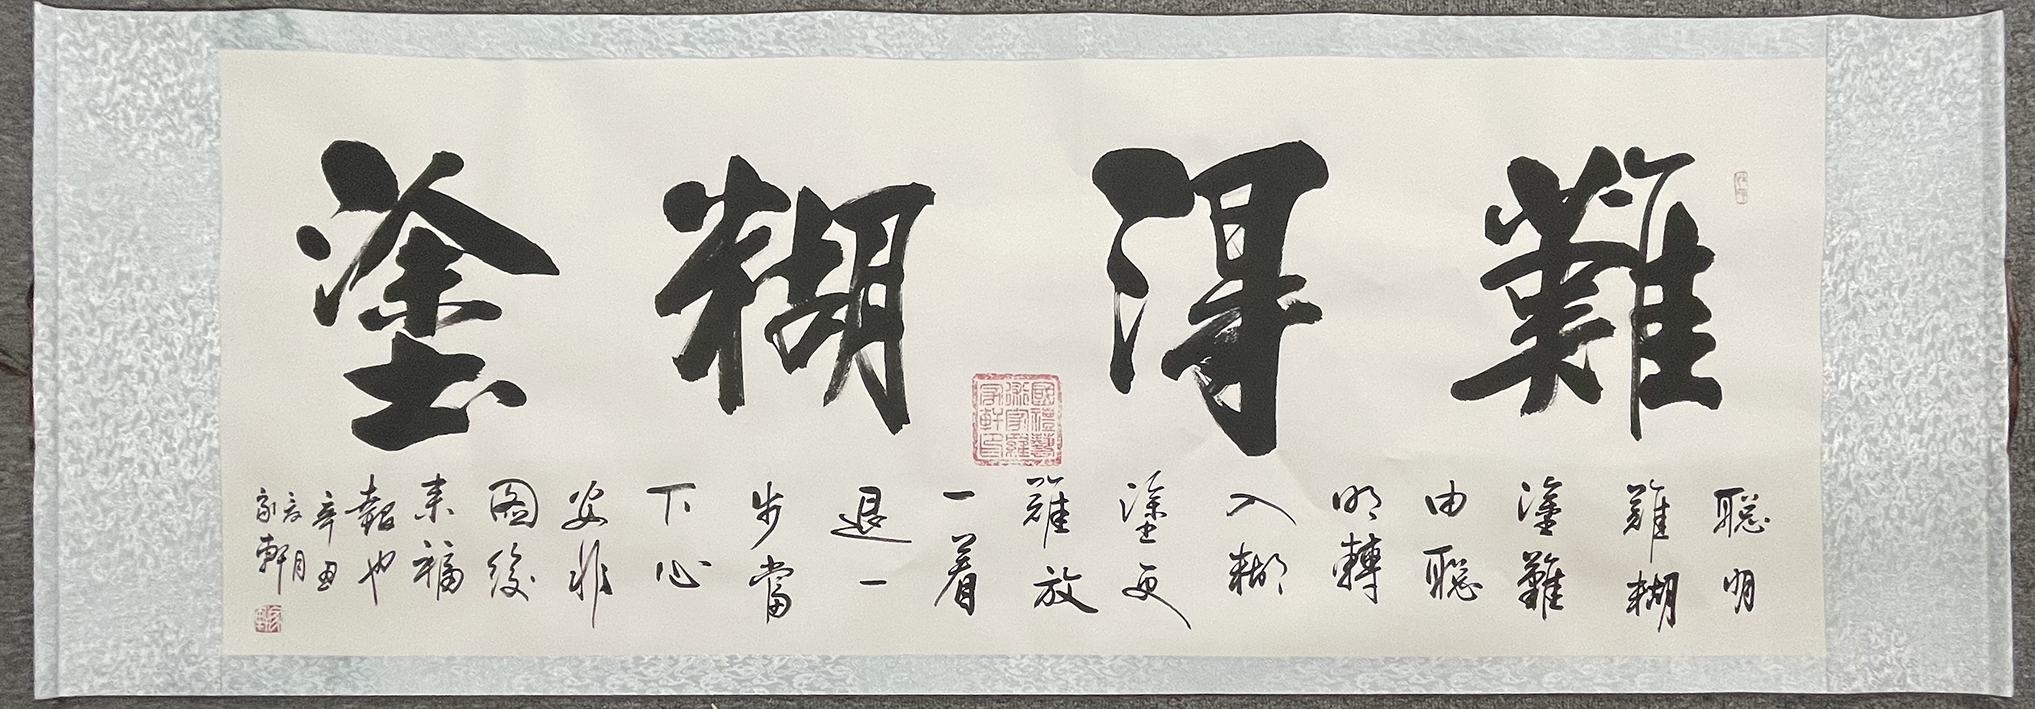 難得糊塗
聰明
難糊
塗難
由聰
明轉
入糊
塗更
難放
一着
退一
步當
下心
安非
圖後
来福
報也
辛丑
月
家軒